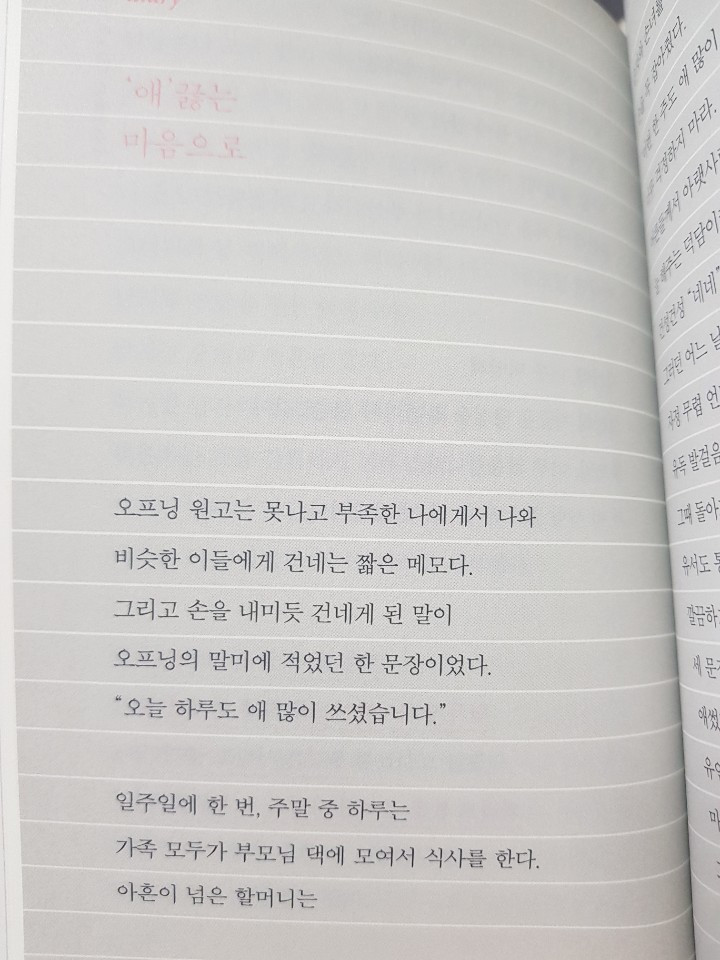 diary
‘애’끓는
마음으로
오프닝 원고는 못나고 부족한 나에게서 나와
비슷한 이들에게 건네는 짧은 메모다.
그리고 손을 내미듯 건네게 된 말이
오프닝의 말미에 적었던 한 문장이었다.
“오늘 하루도 애 많이 쓰셨습니다.”
일주일에 한 번, 주말 중 하루는
가족 모두가 부모님 댁에 모여서 식사를 한다.
아흔이 넘은 할머니는
주도 애 많이
걱정하지 마라.
아랫사
해주는 덕담이
“네네”
그러던 어느 날
자정 무렵 언
유독 발걸음
그때 돌아
유서도 통
깔끔하
세 문
애썼